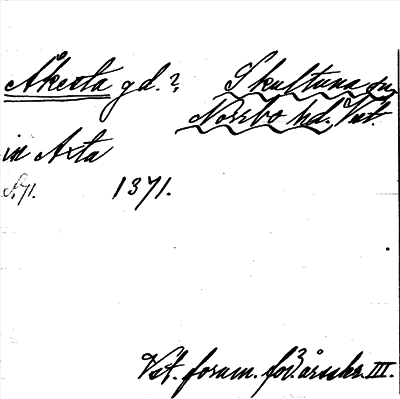 Åkesta gd.? Skultuna sn
Norrbo hd. Vstl.
in Axta
1371.
Vst. fornm. för. årsskr. III.